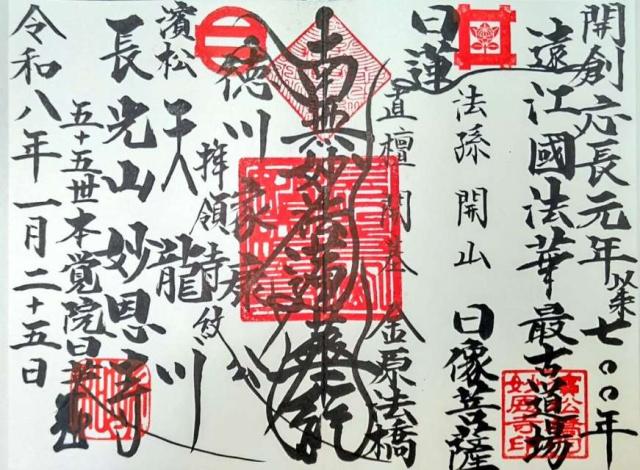 開創応長元年以来七〇〇年
遠江國法華最古道場
日蓮
法孫開山 日像菩薩
直檀開基 金原法橋
南無妙法蓮華経
徳川家康公
拝領寺紋
濱松 天龍川
長光山 妙恩寺
五十五世本覚院日
令和八年一月二十五日
妙恩寺印